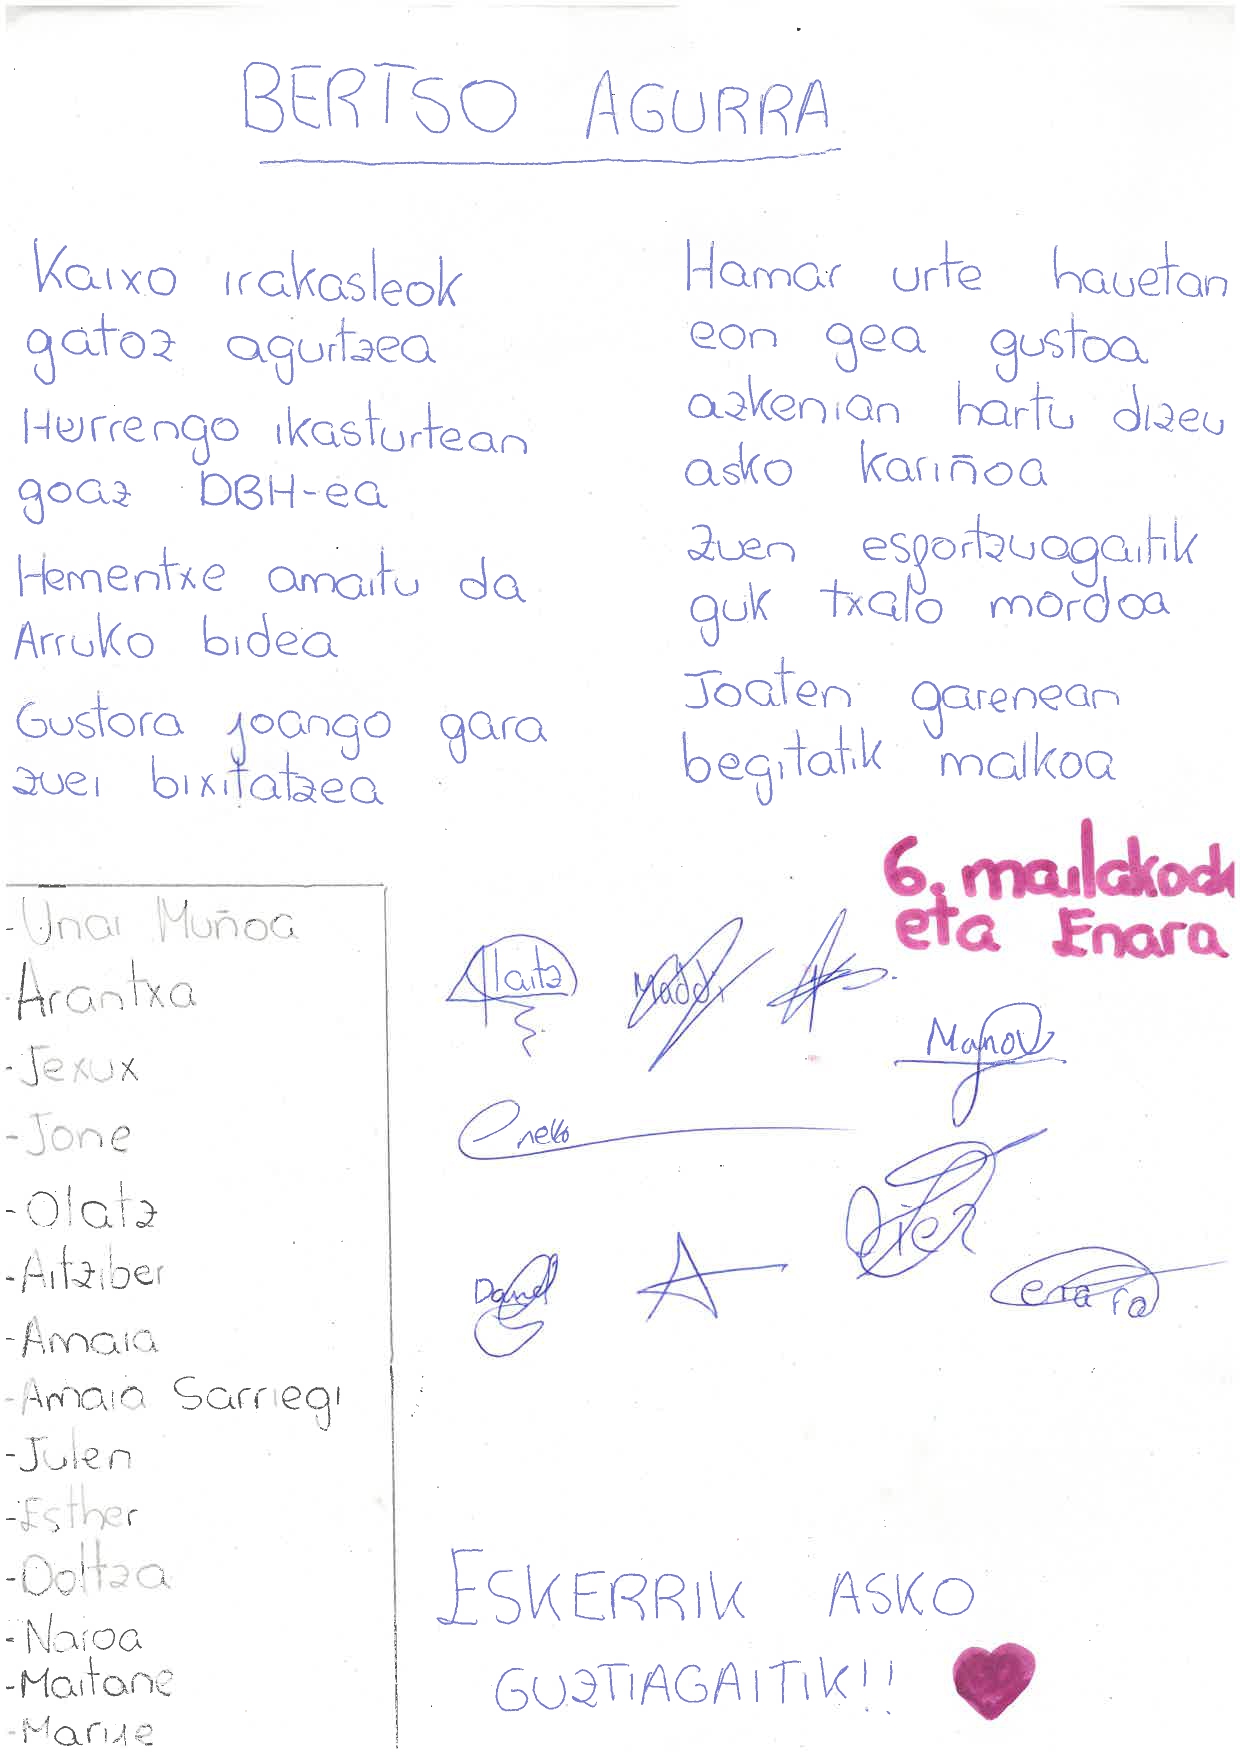 BERTSO AGURRA
Kaixo irakasleok
gatoz agurtzea
Hurrengo ikasturtean
goaz DBH-ea
Hementxe amaitu da
Arruko bidea
Gustora joango gara
zuei bixitatzea
Hamar urte hauetan
eon gea gustoa
azkenian hartu dizeu
asko kariñoa
zuen esportzuagaitik
guk txalo mordoa
Joaten garenean
begitatik malkoa
6. mailakook
eta Enara
-Unai Muñoa
-Arantxa
-Jexux
-Jone
-Olatz
-Aitziber
-Amaia
-Amaia Sarriegi
-Julen
-Esther
-Doltza
-Naroa
-Maitane
-Marije
Alaitz
Maddi
Eneko
Oier
Danel
enara
ESKERRIK ASKO
GUZTIAGAITIK!!